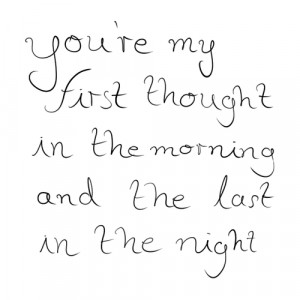 you're my
first thought
in the morning
and the last
in the night